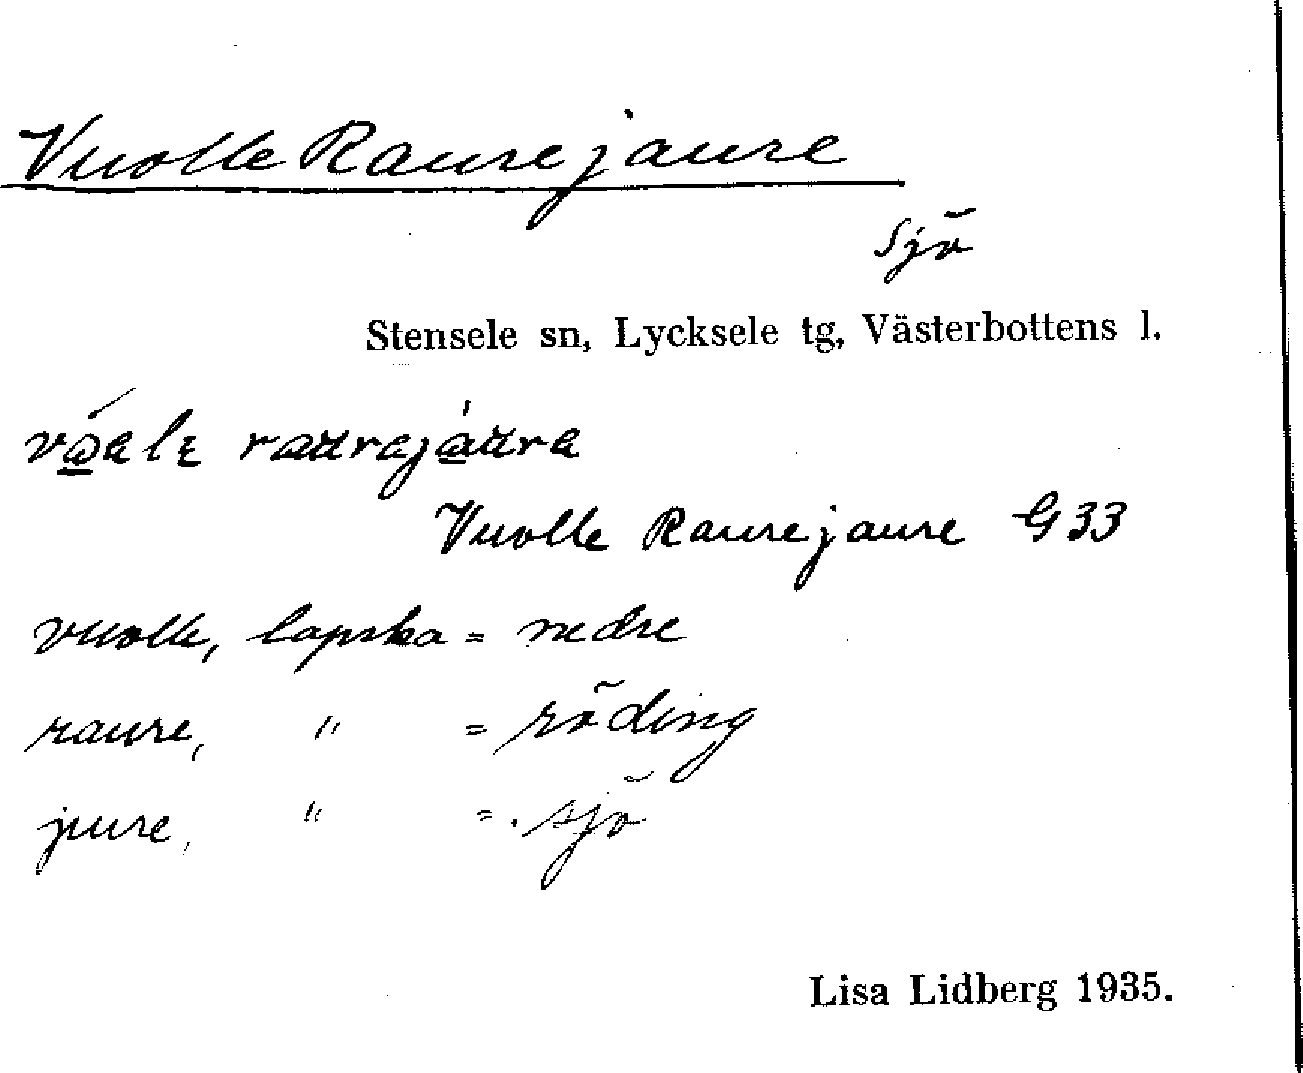 Vuolle Raurejaure
sjö
Stensele sn, Lycksele tg, Västerbottens l.
Vuolle Raurejaure G 33
vuolle, lapska = nedre
raure, " = röding
jaure, " = sjö
Lisa Lidberg 1935.